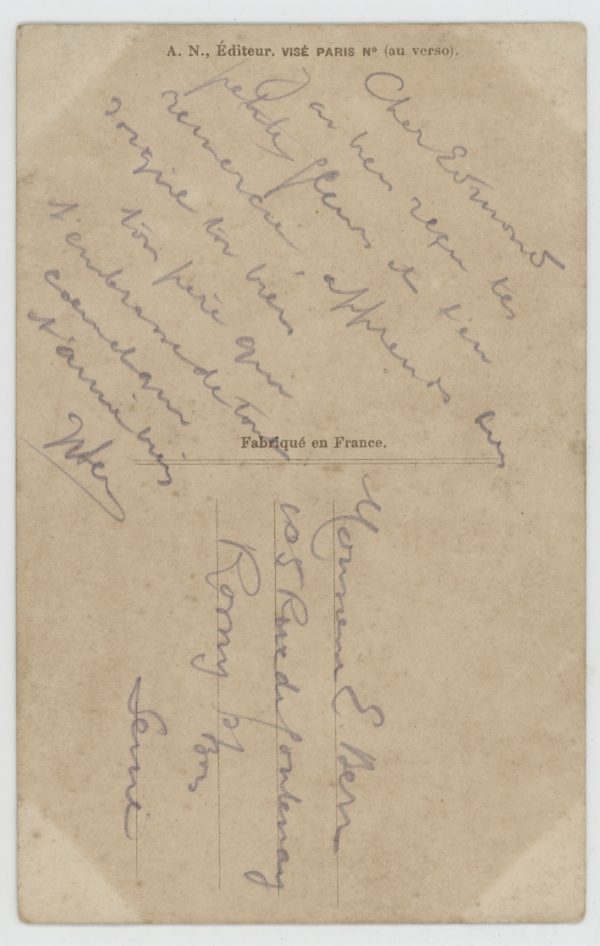 A. N., Éditeur. VISÉ PARIS Nº (au verso).
Cher Edmond
J'ai bien reçu tes
petites fleurs et t'en
remercie apprends
soigne toi bien
ton père qui
t'embrasse de tout
coeur
Fabriqué en France.
Monsieur E Berr
105 Rue de Fontenay
Rosny s/ Bois
Seine